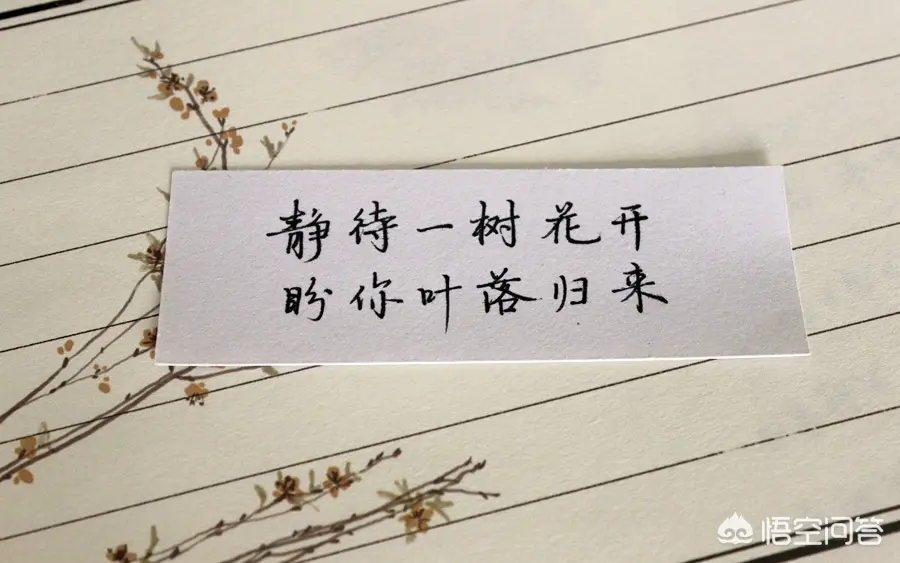 静待一树花开
盼你叶落归来
悟空问答